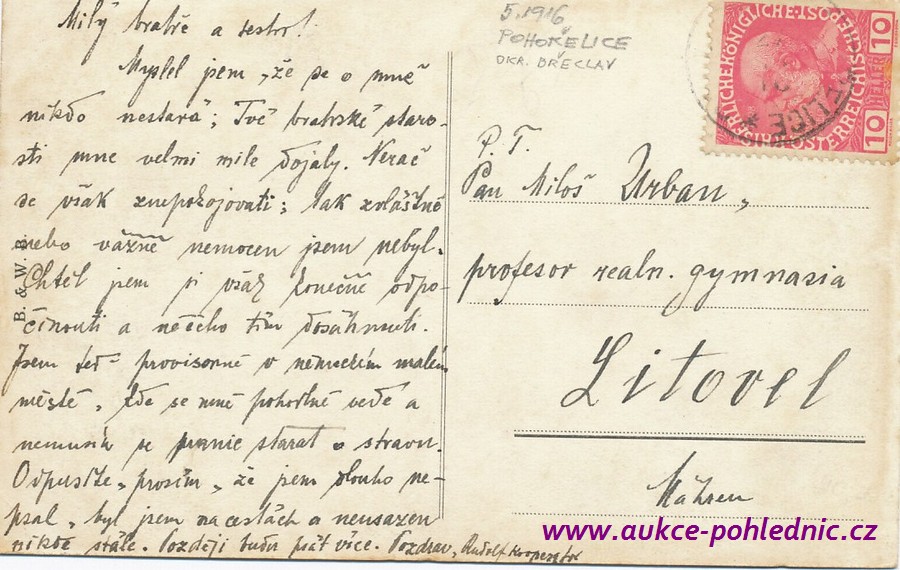 Milý bratře a sestro!
Myslel jsem, že se o mně
nikdo nestará; Tvé bratrské staro-
sti mne velmi mile dojaly. Nerač
se však znepokojovati; tak zvláštně
nebo vážně nemocen jsem nebyl.
Chtěl jsem si však konečně odpo-
činouti a něčeho tím dosáhnouti.
Jsem teď provisorně v německém malém
městě, kde se mně pohodlně vede a
nemusím se pranic starat o stravu.
Odpusťte, prosím, že jsem dlouho ne-
psal, byl jsem na cestách a neusazen
nikde stále. Později budu psát více. Pozdrav, Rudolf
B. & W. B.
5.1916
POHOŘELICE
OKR. BŘECLAV
10 HELLER 10
P. T.
Pan Miloš Urban,
profesor realn. gymnasia
Litovel
Mähren
www.aukce-pohlednic.cz